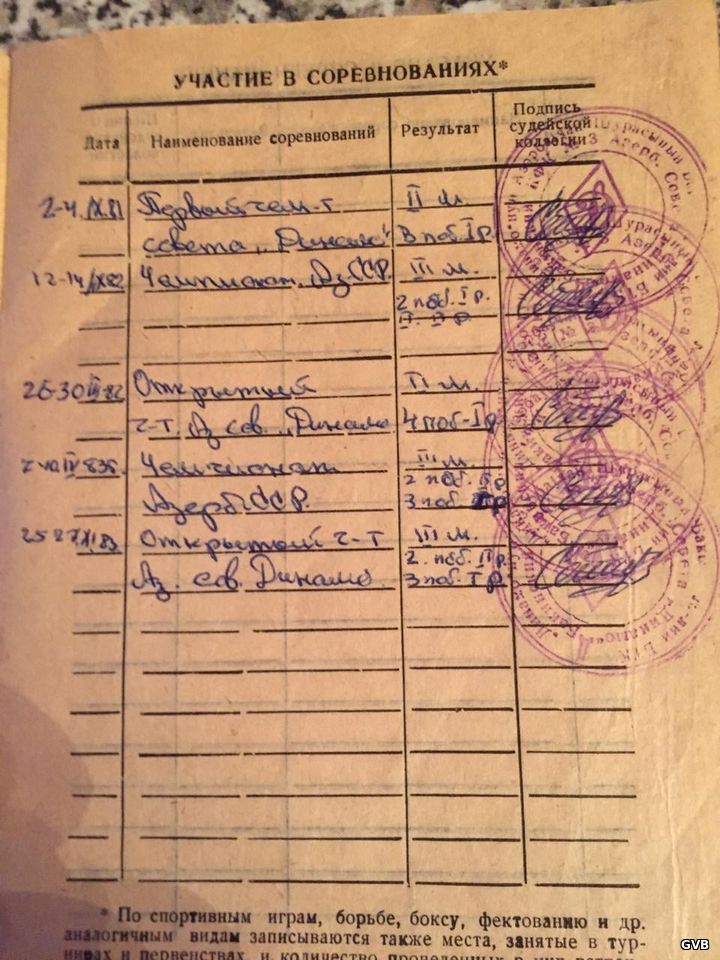 УЧАСТИЕ В СОРЕВНОВАНИЯХ*
Дата Наименование соревнований Результат Подпись судейской коллегии
2-4.IX.81 Первый чем-т II м.
совета „Динамо“ 3 поб. I р.
12-14/IX82 Чемпионат АзССР III м.
2 поб. I р.
26-30 III-82 Открытый II м.
ч-т. Аз сов. „Динамо 4 поб-I р.
Чемпионат III м.
2 поб. II р.
Азерб ССР. 3 поб.
25 27 XI 83 Открытый ч-т III м.
2. поб. II р.
Аз. сов. Динамо 3 поб. I р.
* По спортивным играм, борьбе, боксу, фектованию и др.
аналогичным видам записываются также места, занятые в тур-
нирах и первенствах, и количество проведенных в них
GVB